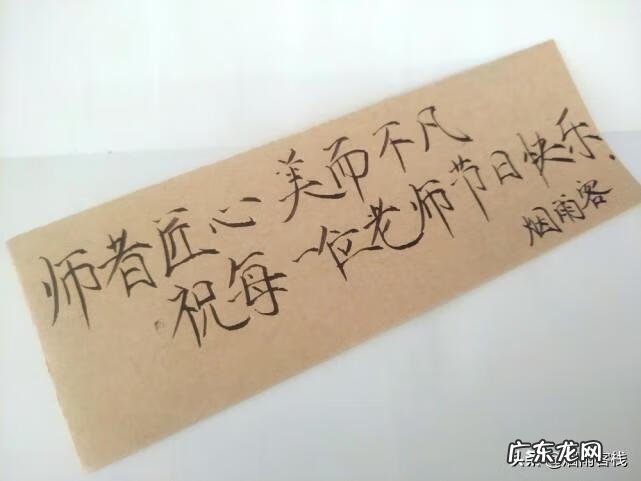 师者匠心 美而不凡
祝每一位老师节日快乐.
烟雨客
广东龙网